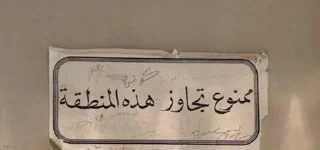 ممنوع تجاوز هذه المنطقة